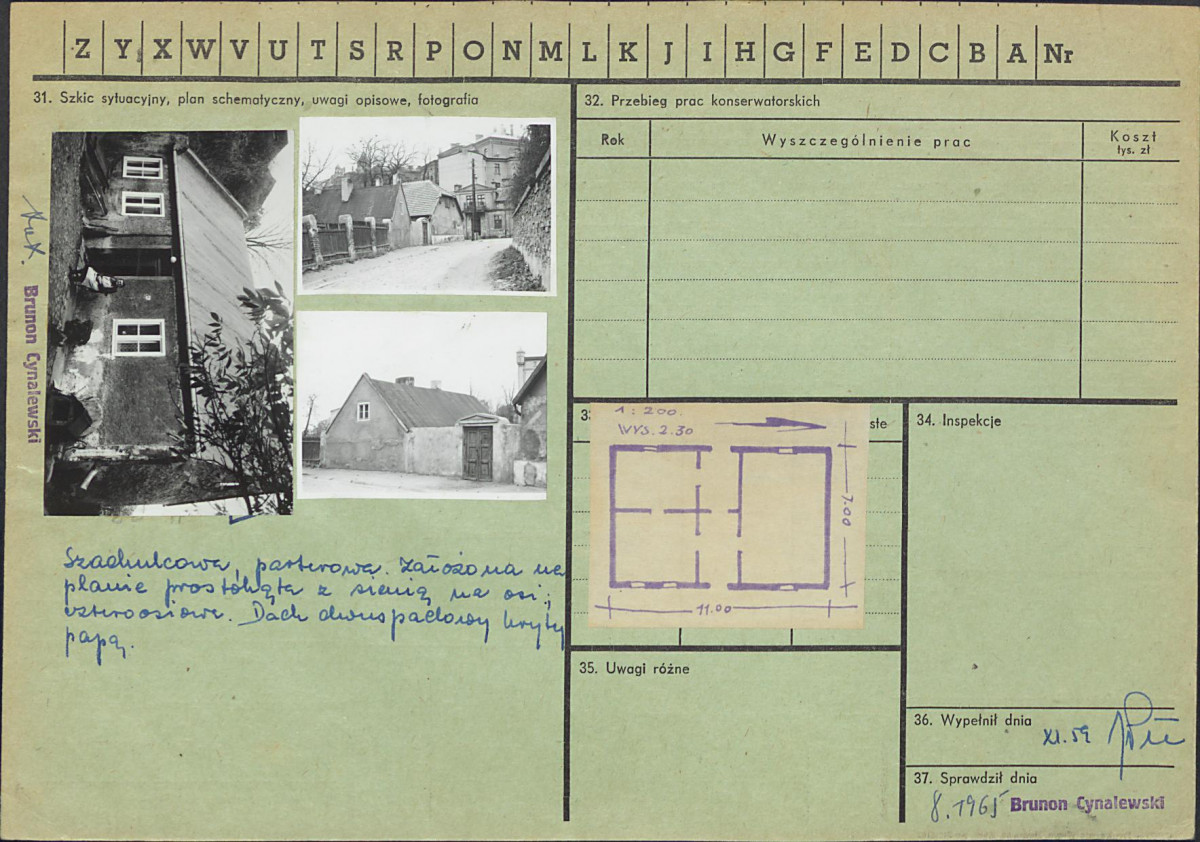 Z Y X W V U T S R P O N M L K J I H G F E D C B A Nr
31. Szkic sytuacyjny, plan schematyczny, uwagi opisowe, fotografia
Brunon Cynalewski
Szachulcowa, parterowa. Założona na
planie prostokąta z sienią na osi;
czteroosiowa. Dach dwuspadowy kryty
papą.
32. Przebieg prac konserwatorskich
Rok
Wyszczególnienie prac
Koszt
tys. zł
1 : 200.
WYS. 2.30
7.00
11.00
34. Inspekcje
35. Uwagi różne
36. Wypełnił dnia
XI.59
37. Sprawdził dnia
8.1965 Brunon Cynalewski